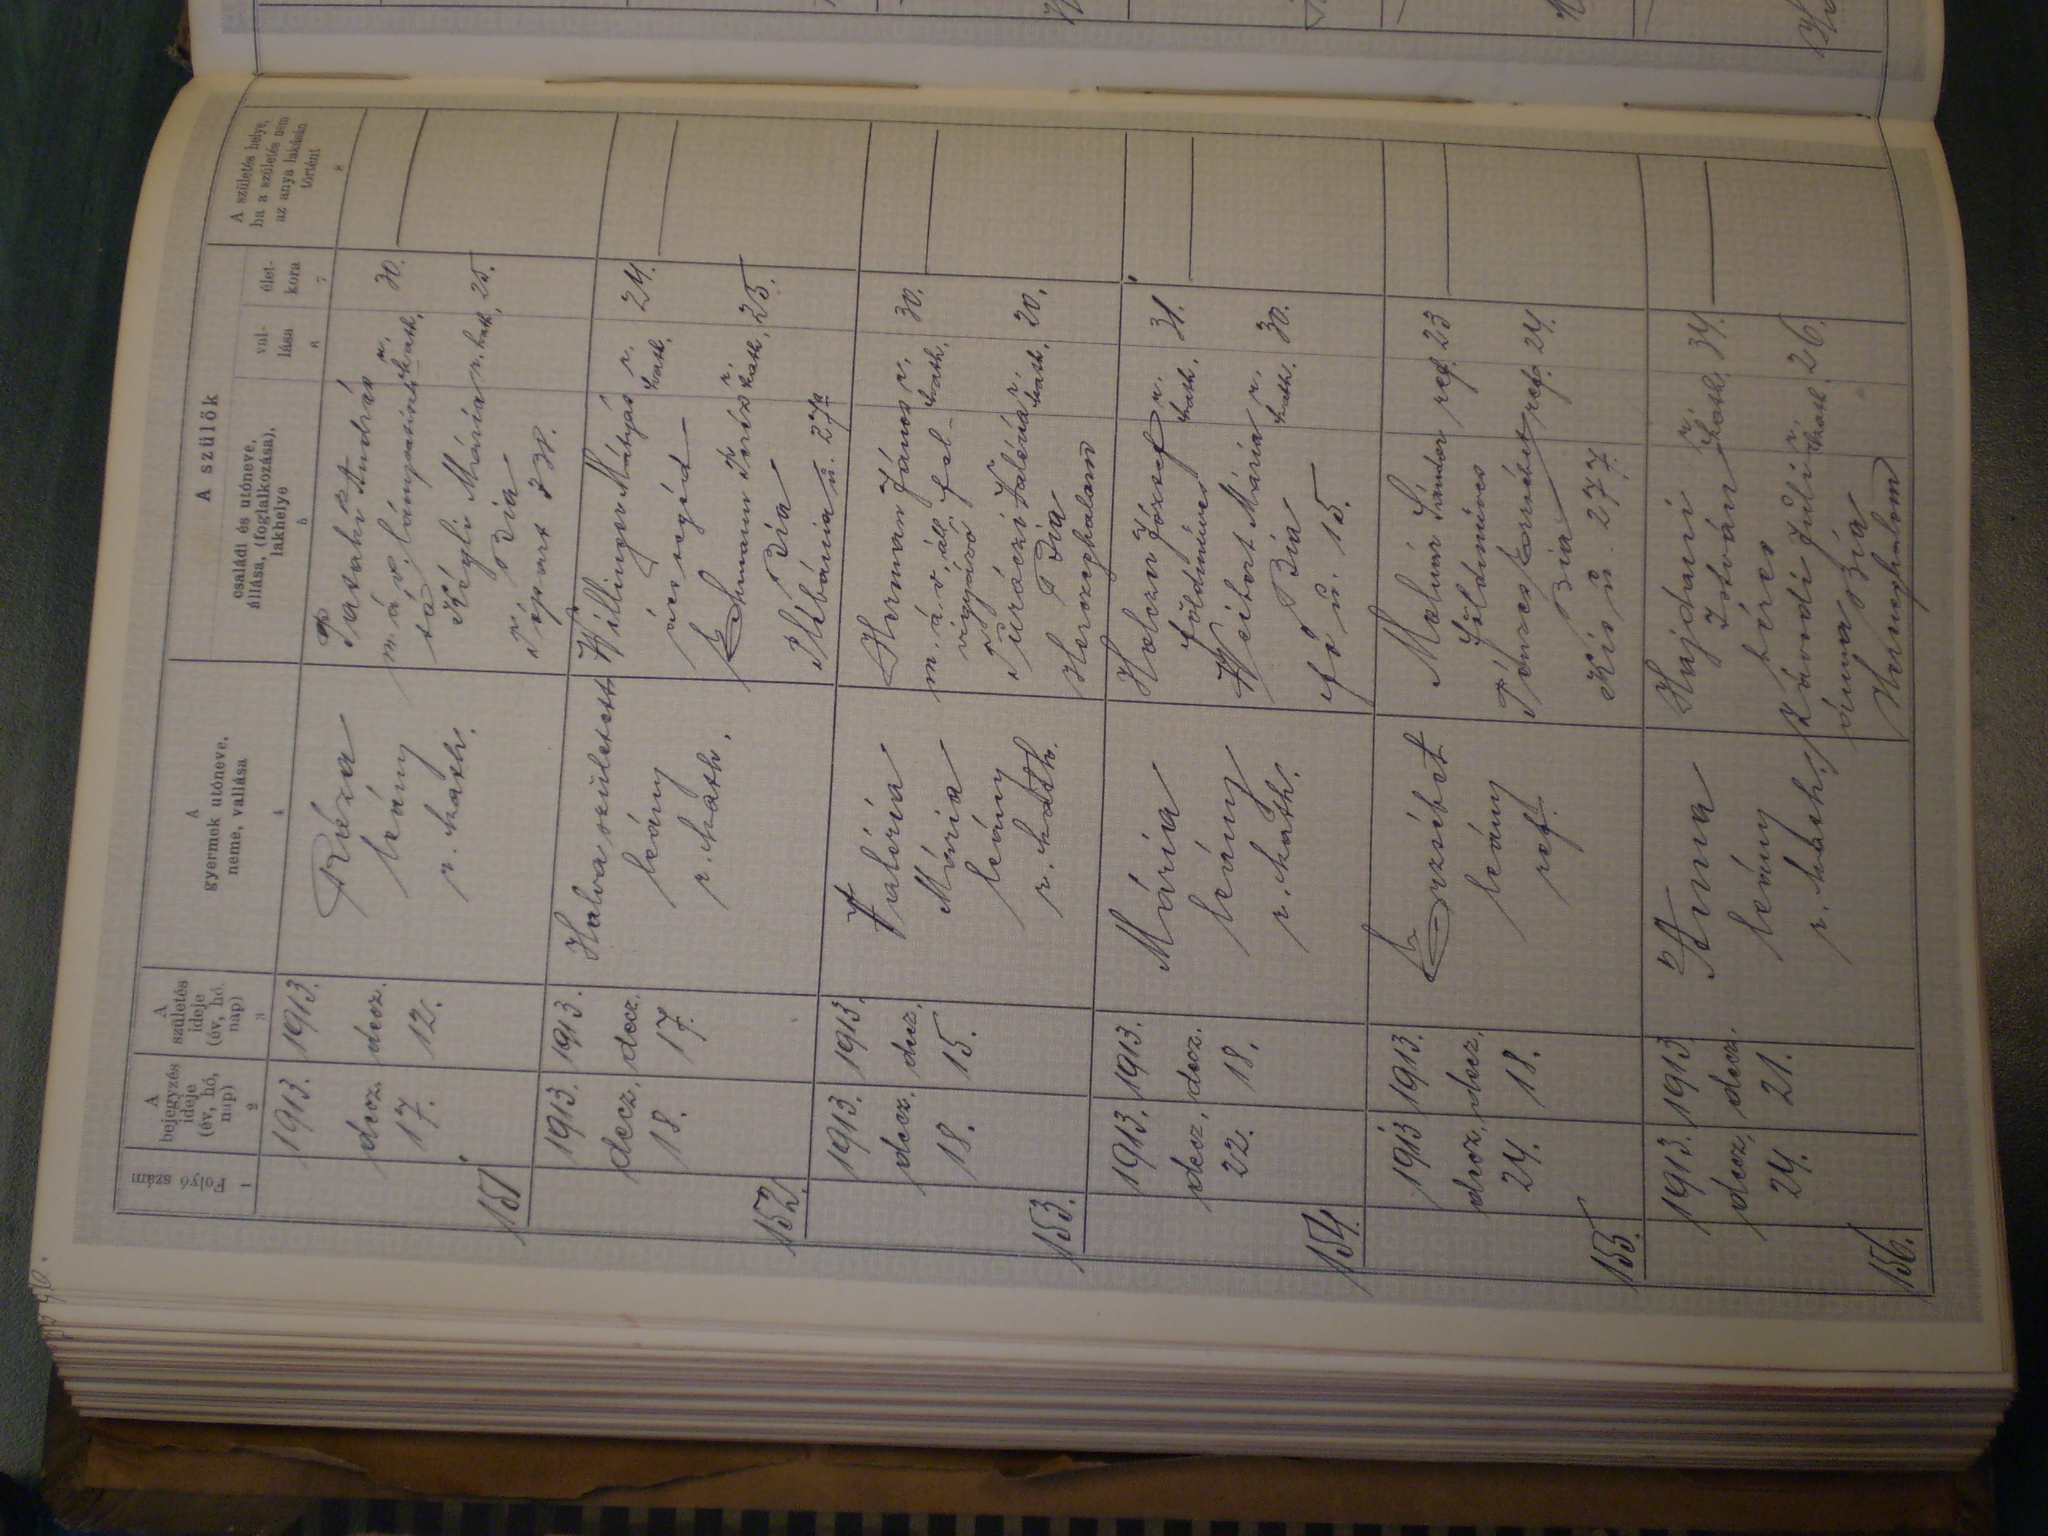 A szülők
Folyó szám
A bejegyzés ideje (év, hó, nap)
A születés ideje (év, hó, nap)
A gyermek utóneve, neme, vallása
családi és utóneve, állása, (foglalkozása), lakhelye
val-lása
élet-kora
A születés helye, ha a születés nem az anya lakásán történt
1 2 3 4 5 6 7 8
151
1913. decz. 17.
1913. decz. 12.
Réza
leány
r. kath.
Pataki András r. kath. 30.
Kégli Mária r. kath. 25.
Bia
152.
1913. decz. 18.
1913. decz. 17.
Halva született
leány
r. kath.
Willinger Mátyás r. kath. 24.
ács segéd
Teréz r. kath. 25.
Bia
Plébánia u. 272
153.
1913. decz. 18.
1913. decz. 15.
Valéria
Mária
leány
r. kath.
Herman János r. kath. 30.
m. á. v. áll. fel-
vigyázó
Turóczi Valéria r. kath. 20.
Bia
Herczeghalom
154.
1913. decz. 22.
1913. decz. 18.
Mária
leány
r. kath.
Holczer József r. kath. 31.
földmíves
Mária r. kath. 30.
Bia
Fő u. 15.
155.
1913 decz. 24.
1913. decz. 18.
Erzsébet
leány
ref.
Molnár Sándor ref. 23
földmíves
Erzsébet ref. 24.
Bia
Kis u. 277.
156.
1913. decz. 24.
1913 decz. 21.
Anna
leány
r. kath.
Hajdani István r. kath. 34.
béres
r. kath. 26.
Bia
Herceghalom